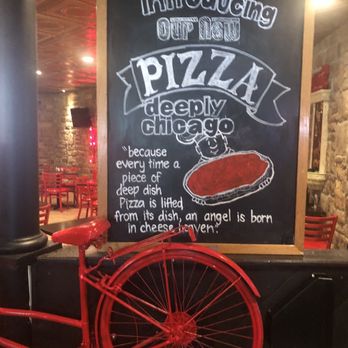 introducing
our new
PIZZA
deeply
chicago
"because
every time a
piece of
deep dish
Pizza is lifted
from its dish, an angel is born
in cheese heaven."